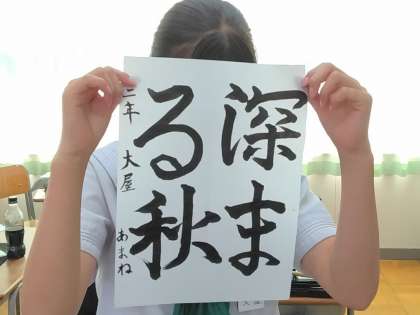 深ま
る秋
二年 大屋 あまね